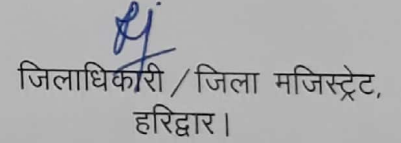 जिलाधिकारी / जिला मजिस्ट्रेट,
हरिद्वार।